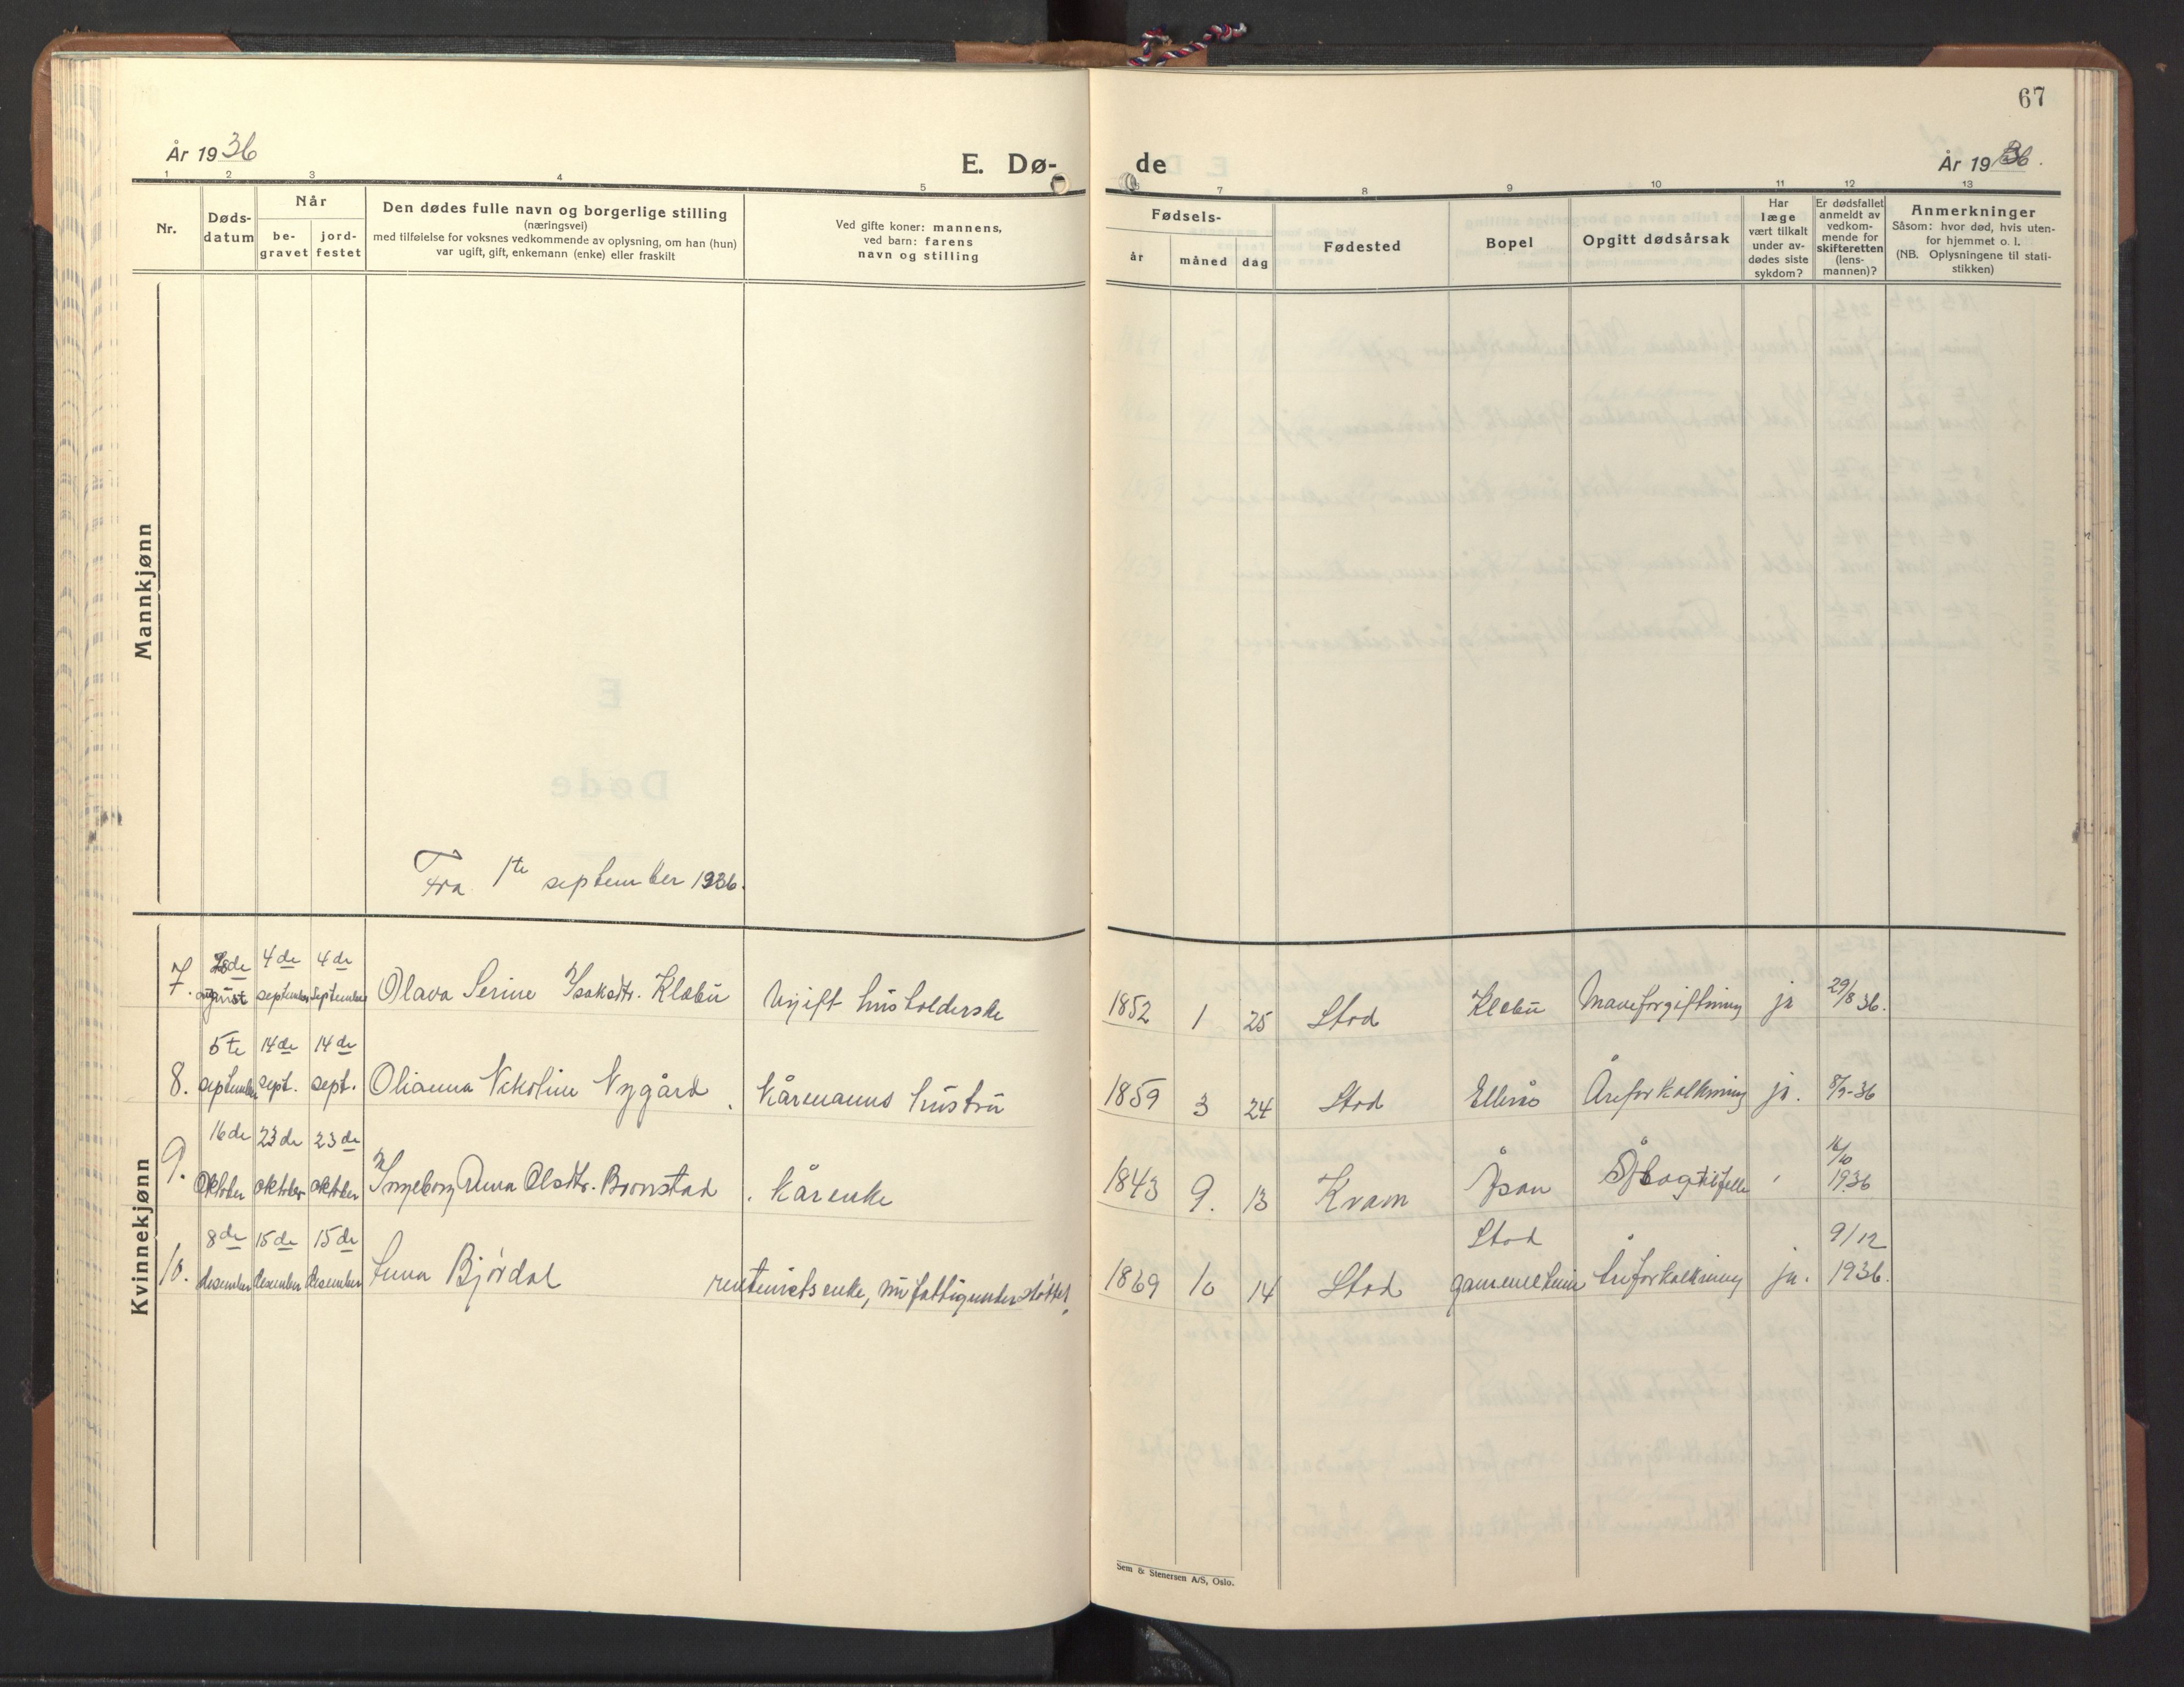 67
År 1936
E. Dø-
de
År 1936.
1 2 3 4 5
7 8 9 10 11 12 13
Nr.
Døds-
datum
Når
be-
gravet
jord-
festet
Den dødes fulle navn og borgerlige stilling
(næringsvei)
med tilføielse for voksnes vedkommende av oplysning, om han (hun)
var ugift, gift, enkemann (enke) eller fraskilt
Ved gifte koner: mannens,
ved barn: farens
navn og stilling
Fødsels-
år måned dag
Fødested
Bopel
Opgitt dødsårsak
Har
læge
vært tilkalt
under av-
dødes siste
sykdom?
Er dødsfallet
anmeldt av
vedkom-
mende for
skifteretten
(lens-
mannen)?
Anmerkninger
Såsom: hvor død, hvis uten-
for hjemmet o. l.
(NB. Oplysningene til stati-
stikken)
Mannkjønn
Fra 1te september 1936.
Kvinnekjønn
28de 4de 4de
7. august september september Olava Serine Isaksdtr. Klæbu Ugift husholderske 1852 1 25 Stod Klæbu Maveforgiftning ja 29/8 36.
5te 14de 14de
8. september sept. sept. Olianna Nikoline Nygård kårmanns hustru 1859 3 24 Stod Åreforkalkning ja. 8/9-36
16de 23de 23de
9. Oktober oktober oktober Ingeborg Anna Olsdtr. kårenke 1843 9. 13 Kvam Åsan 16/10 1936
8de 15de 15de
10. desember desember desember Anna Bjørdal enke, nu fattigunderstøttet. 1869 10 14 Stod Stod gammelheim Åreforkalkning ja. 9/12 1936.
Sem & Stenersen A/S, Oslo.